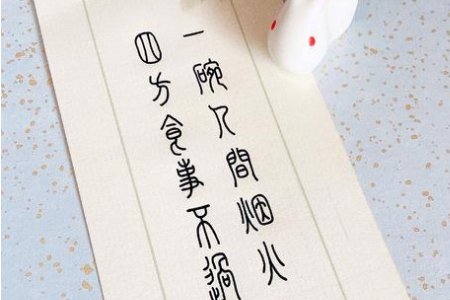 四方食事不過
一碗人間烟火